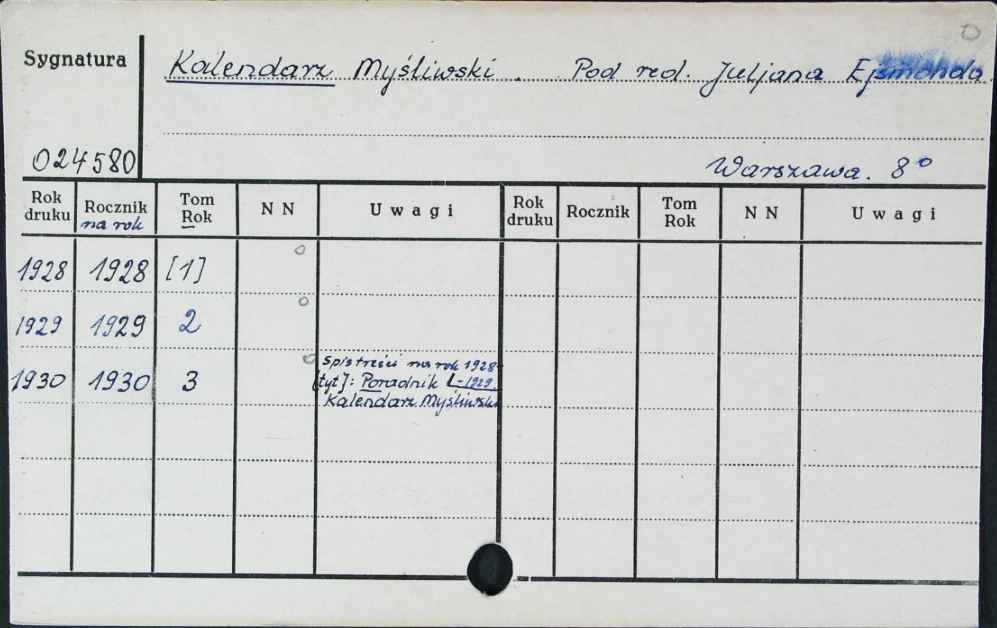 Sygnatura
Kalendarz Myśliwski. Pod red. Juljana Ejsmonda.
024580
Warszawa. 8°
Rok druku Rocznik na rok Tom Rok N N Uwagi Rok druku Rocznik Tom Rok N N Uwagi
1928 1928 [1]
1929 1929 2
1930 1930 3
Spis treści na rok 1928-
[tyt]: Poradnik -1929.
Kalendarz Myśliwski